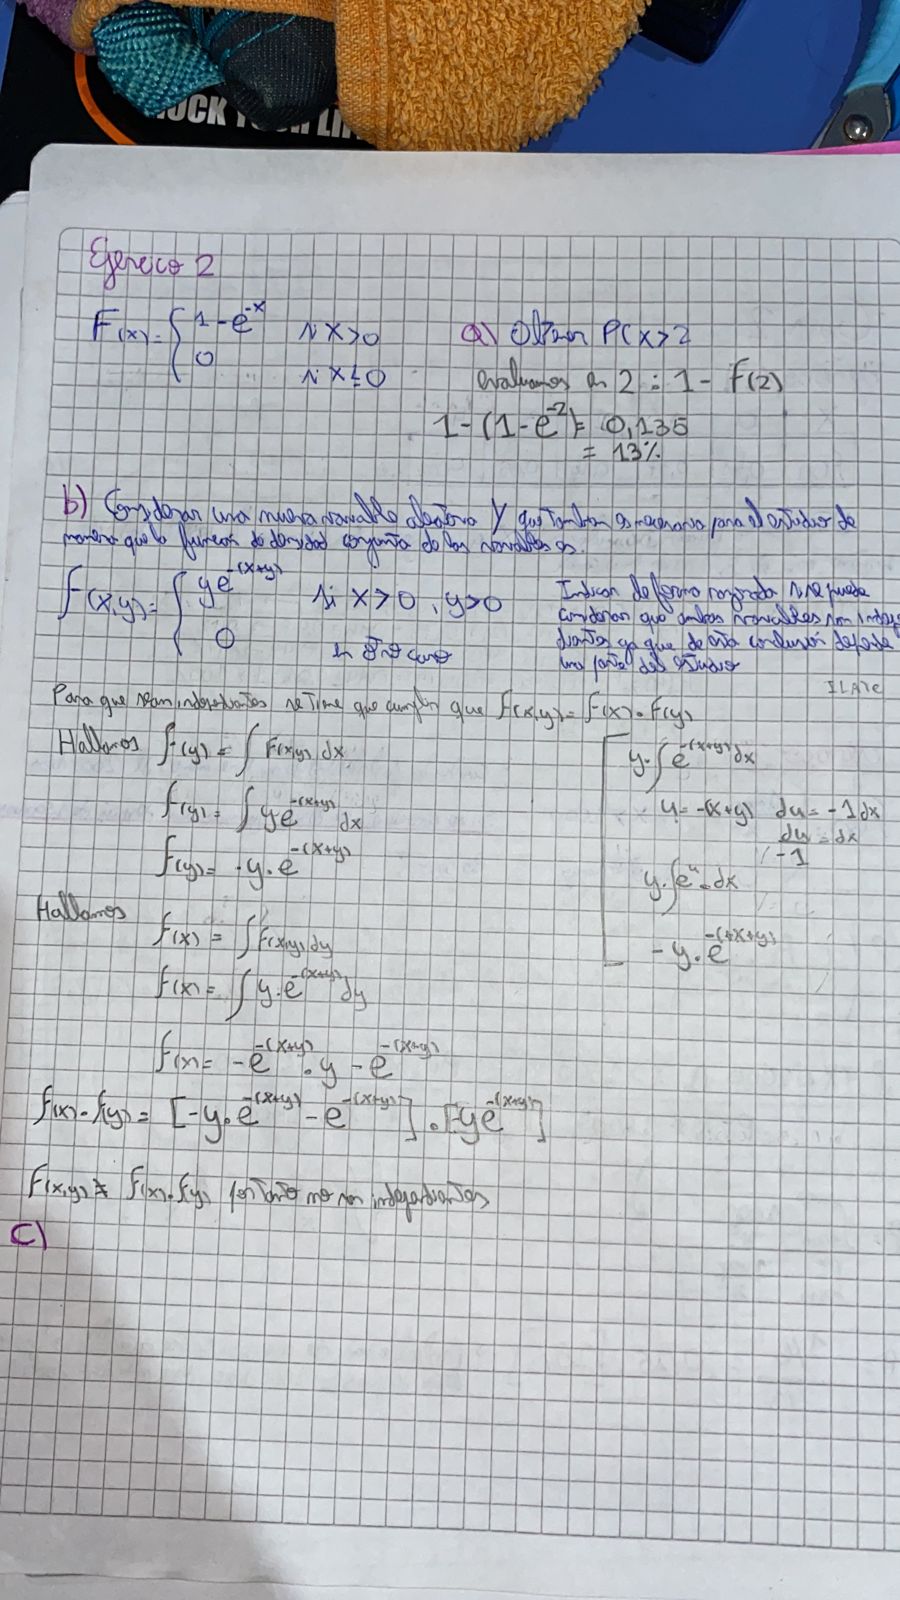 OCK YOUR LI
Ejercicio 2
F(x)= { 1-e^-x si x>0
0 si x≤0
a) Obtener P(x>2
evaluamos en 2 : 1- F(2)
1-(1-e^-2)= 0,135
= 13%
b) Considerar una nueva variable aleatoria Y que tambien es necesaria para el estudio de
manera que la funcion de densidad conjunta de las variables es.
f(x,y)= { ye^-(x+y) si x>0 , y>0
0 en otro caso
Indicar de forma razonada si se puede
considerar que ambas variables son indepen
dientes ya que de esta conclusión depende
una parte del estudio
ILATE
Para que sean independientes se tiene que cumplir que f(x,y)= f(x)·f(y)
Hallamos f(y)= ∫ F(x,y) dx
f(y)= ∫ ye^-(x+y) dx
f(y)= -y·e^-(x+y)
y·∫e^-(x+y) dx
u=-(x+y) du=-1dx
du/-1=dx
y·∫e^u·dx
-y·e^-(x+y)
Hallamos
f(x)= ∫F(x,y)dy
f(x)= ∫y·e^-(x+y) dy
f(x)= -e^-(x+y)·y -e^-(x+y)
f(x)·f(y)= [-y·e^-(x+y) -e^-(x+y)]·[-ye^-(x+y)]
F(x,y) ≠ f(x)·f(y) por tanto no son independientes
C)